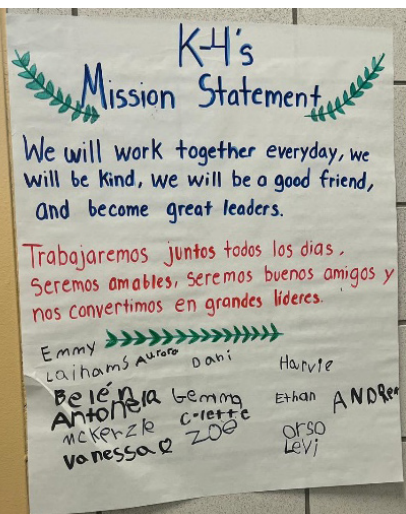 K-4's
Mission Statement
We will work together everyday, we
will be kind, we will be a good friend,
and become great leaders.
Trabajaremos juntos todos los dias.
Seremos amables, seremos buenos amigos y
nos convertimos en grandes líderes.
Emmy
Aurora Dani Harvie
Belén Gemma Ethan ANDREA
Antonela Colette
McKenzie ZOE Orso
Vanessa Levi